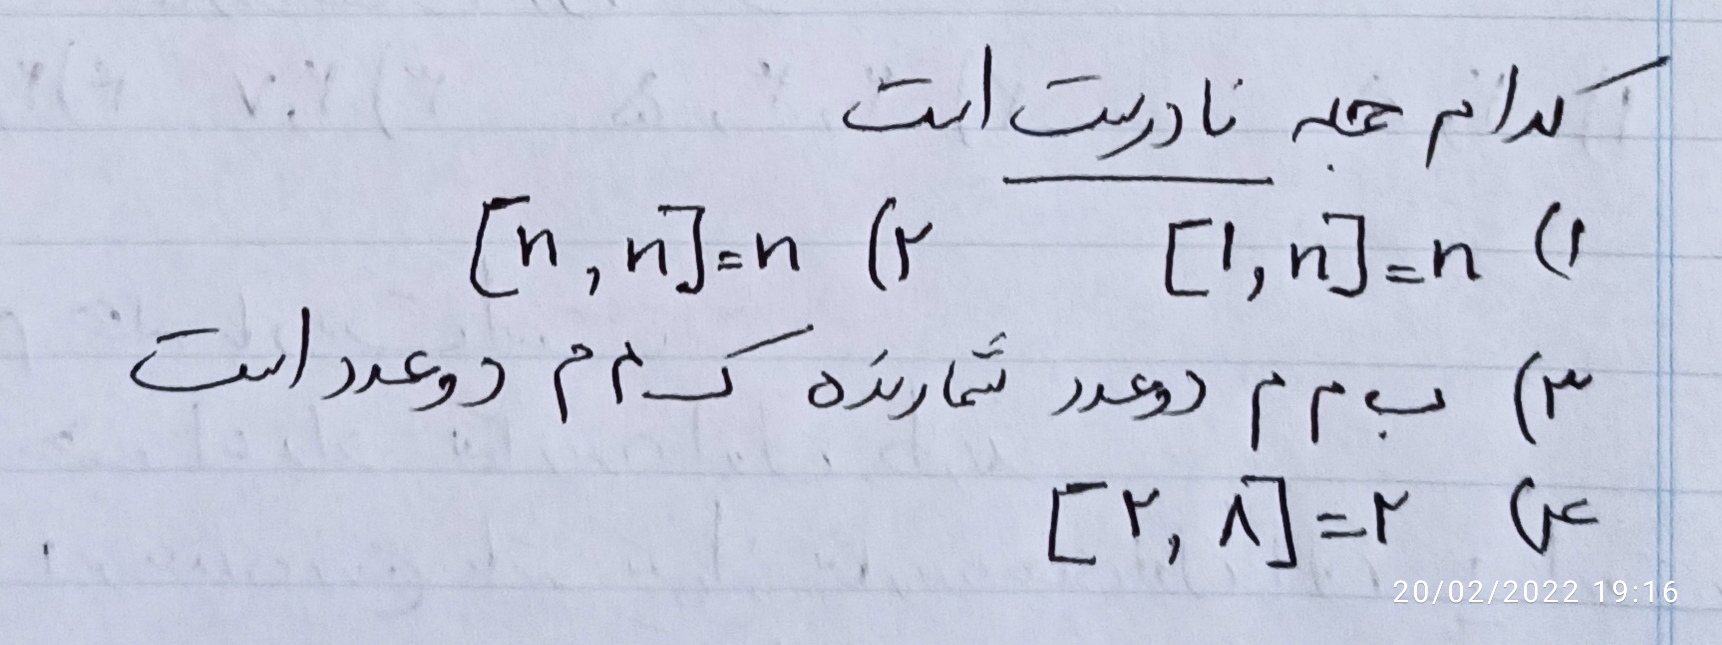 کدام جمله نادرست است
۱) [۱, n]=n ۲) [n, n]=n
۳) ب م م دو عدد شمارنده ک م م دو عدد است
۴) [۲, ۸]=۲
20/02/2022 19:16